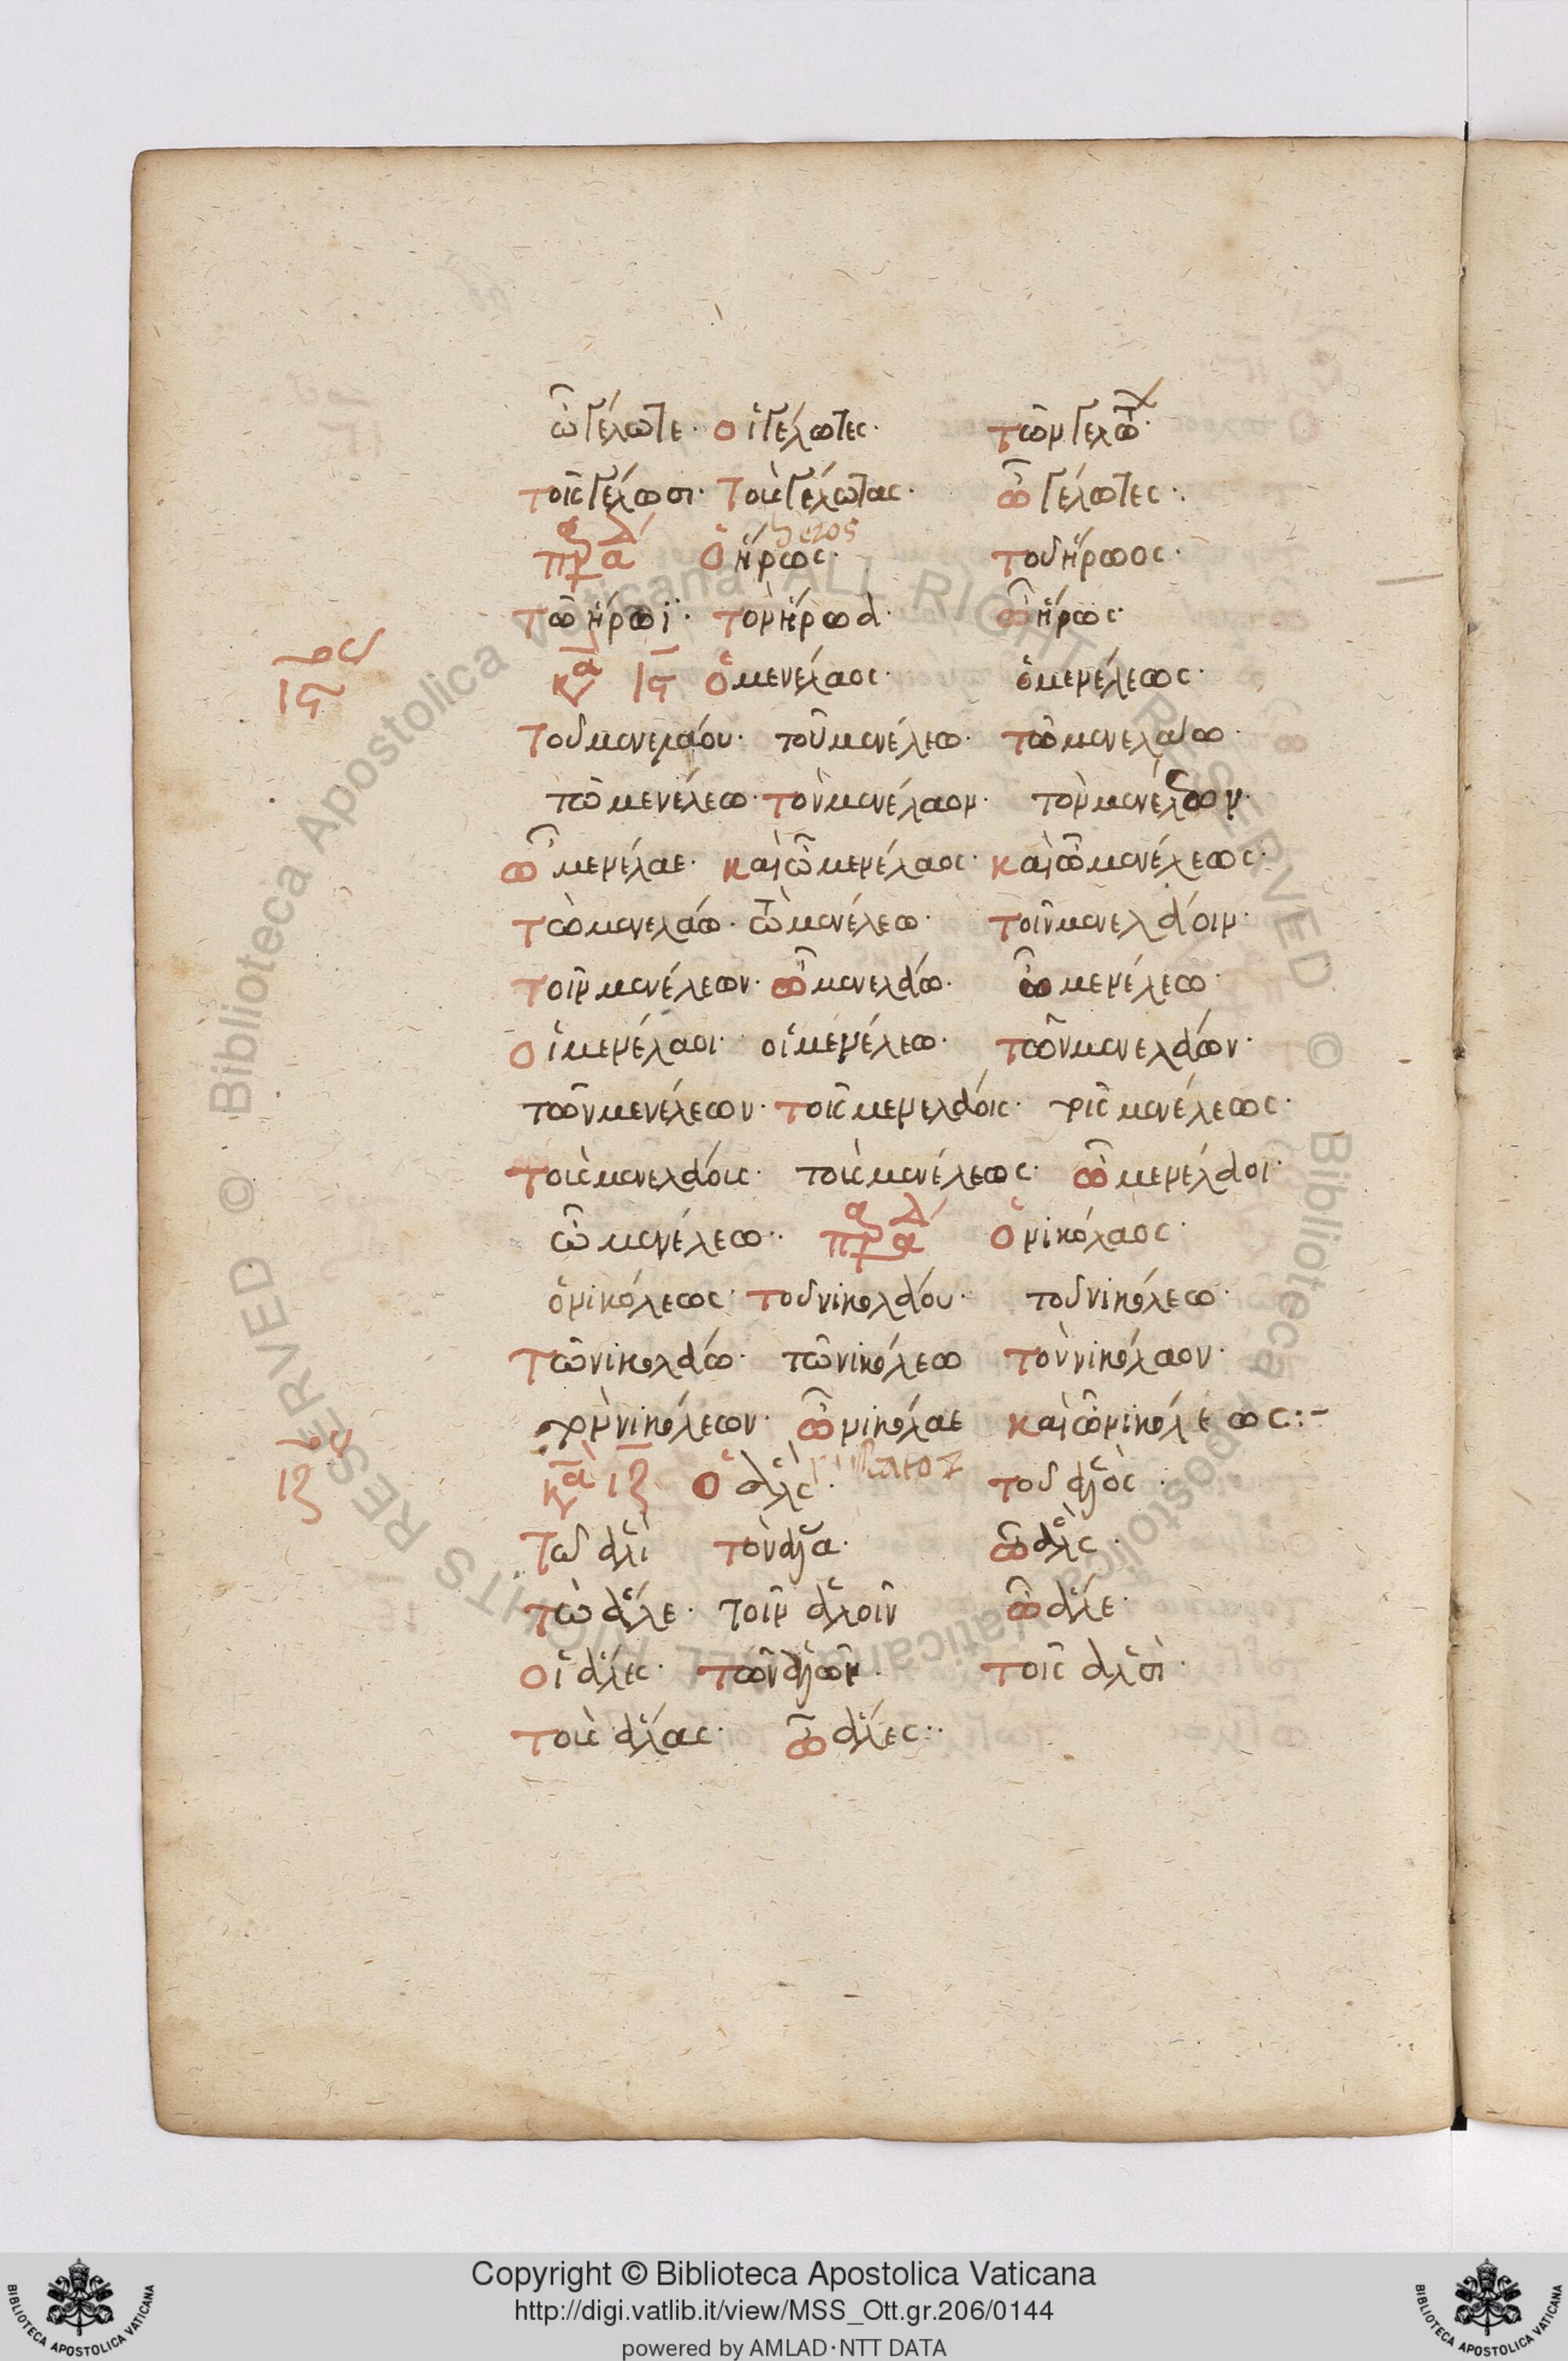 ὦ γέλωτε· οἱ γέλωτες· τῶν γελώτ·
τοῖς γέλωσι· τοὺς γέλωτας· ὦ γέλωτες·
ὁ ἥρως· τοῦ ἥρωος·
τῷ ἥρωϊ· τὸν ἥρωα· ὦ ἥρως·
ις ις ὁ μενέλαος· ὁ μενέλεως·
τοῦ μενελάου· τοῦ μενέλεω· τῶ μενελάω·
τῶ μενέλεω· τὸν μενέλαον· τὸν μενέλεων·
ὦ μενέλαε· καὶ ὦ μενέλαος· καὶ ὦ μενέλεως·
τὼ μενελάω· τὼ μενέλεω· τοῖν μενελάοιν·
τοῖν μενέλεων· ὦ μενελάω· ὦ μενέλεω·
οἱ μενέλαοι· οἱ μενέλεω· τῶν μενελάων·
τῶν μενέλεων· τοῖς μενελάοις· τοῖς μενέλεως·
τοὺς μενελάους· τοὺς μενέλεως· ὦ μενέλαοι·
ὦ μενέλεω·· ὁ νικόλαος·
ὁ νικόλεως· τοῦ νικολάου· τοῦ νικόλεω·
τῶ νικολάω· τῶ νικόλεω τὸν νικόλαον·
τὸν νικόλεων· ὦ νικόλαε καὶ ὦ νικόλεως:-
ιζ ιζ ὁ ἅλς· τοῦ ἁλὸς·
τῶ ἁλὶ τὸν ἅλα· ὦ ἅλς·
τὼ ἅλε· τοῖν ἁλοῖν ὦ ἅλε·
οἱ ἅλες· τῶν ἁλῶν· τοῖς ἁλσὶ·
τοὺς ἅλας· ὦ ἅλες··
Biblioteca Apostolica Vaticana ALL RIGHTS RESERVED © Biblioteca Apostolica Vaticana ALL RIGHTS RESERVED ©
Copyright © Biblioteca Apostolica Vaticana
http://digi.vatlib.it/view/MSS_Ott.gr.206/0144
powered by AMLAD·NTT DATA
BIBLIOTECA APOSTOLICA VATICANA
BIBLIOTECA APOSTOLICA VATICANA